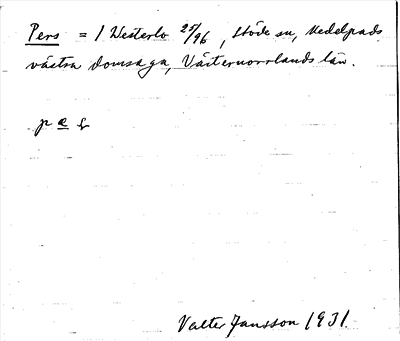 Pers = 1 Westerlo 25/96, Stöde sn, Medelpads
västra domsaga, Västernorrlands län.
p æ
Valter Jansson 1931